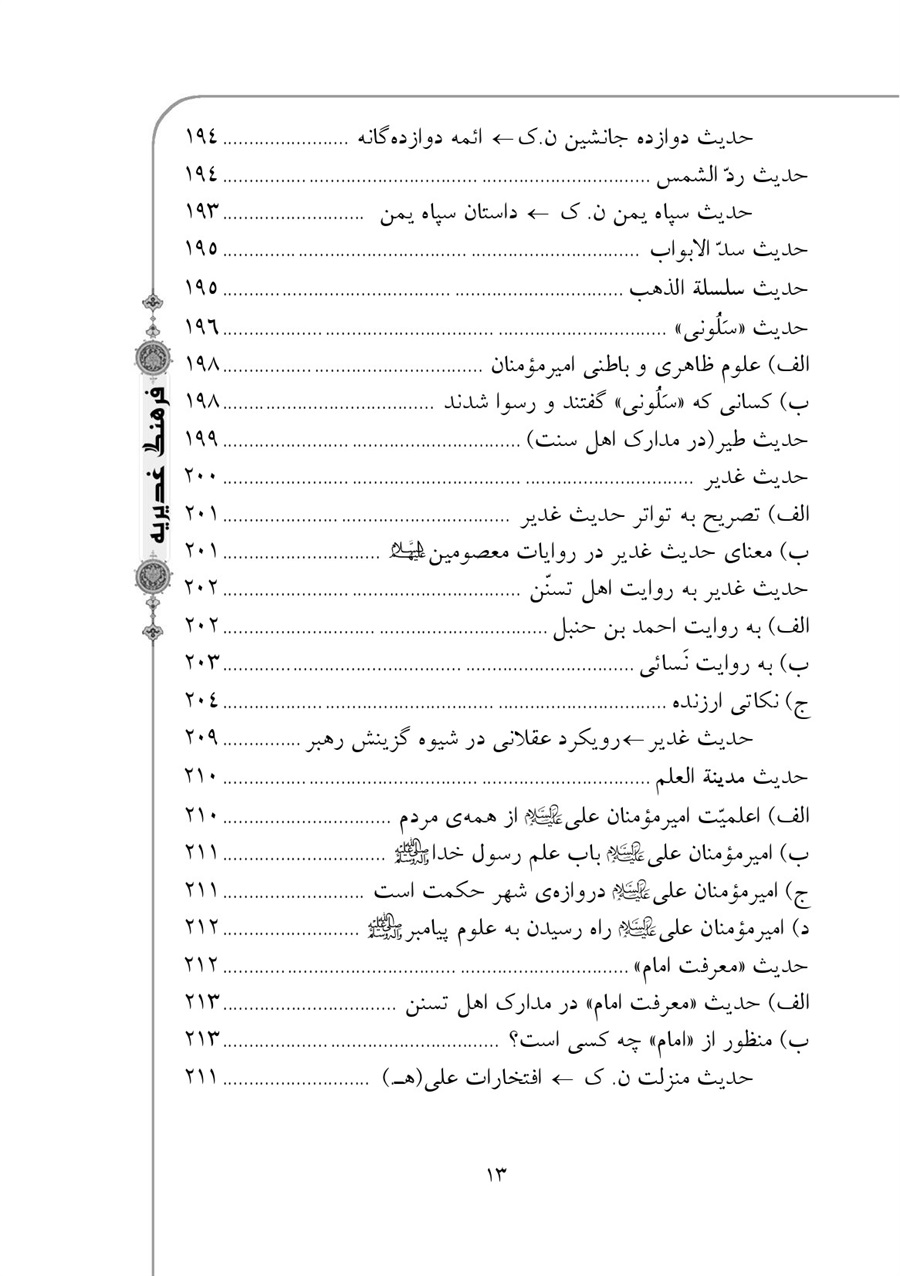 حدیث دوازده جانشین ن.ک ← ائمه دوازده‌گانه ........................ ١٩٤
حدیث ردّ الشمس ................................................................................. ١٩٤
حدیث سپاه یمن ن. ک ← داستان سپاه یمن ........................... ١٩٣
حدیث سدّ الابواب ................................................................................ ١٩٥
حدیث سلسلة الذهب ............................................................................ ١٩٥
حدیث «سَلُونی» .................................................................................... ١٩٦
الف) علوم ظاهری و باطنی امیرمؤمنان .................................................. ١٩٨
ب) کسانی که «سَلُونی» گفتند و رسوا شدند ........................................ ١٩٨
حدیث طیر(در مدارک اهل سنت) ......................................................... ١٩٩
حدیث غدیر .......................................................................................... ٢٠٠
الف) تصریح به تواتر حدیث غدیر ....................................................... ٢٠١
ب) معنای حدیث غدیر در روایات معصومین علیهم‌السلام .............................. ٢٠١
حدیث غدیر به روایت اهل تسنّن ......................................................... ٢٠٢
الف) به روایت احمد بن حنبل .............................................................. ٢٠٢
ب) به روایت نَسائی .............................................................................. ٢٠٣
ج) نکاتی ارزنده .................................................................................... ٢٠٤
حدیث غدیر ←رویکرد عقلانی در شیوه گزینش رهبر ............... ٢٠٩
حدیث مدینة العلم ................................................................................. ٢١٠
الف) اعلمیّت امیرمؤمنان علی علیه‌السلام از همه‌ی مردم ................................ ٢١٠
ب) امیرمؤمنان علی علیه‌السلام باب علم رسول خدا صلی‌الله‌علیه‌وآله ............................... ٢١١
ج) امیرمؤمنان علی علیه‌السلام دروازه‌ی شهر حکمت است ........................... ٢١١
د) امیرمؤمنان علی علیه‌السلام راه رسیدن به علوم پیامبر صلی‌الله‌علیه‌وآله .......................... ٢١٢
حدیث «معرفت امام» ............................................................................. ٢١٢
الف) حدیث «معرفت امام» در مدارک اهل تسنن ................................. ٢١٣
ب) منظور از «امام» چه کسی است؟ .................................................... ٢١٣
حدیث منزلت ن. ک ← افتخارات علی(هـ) ............................ ٢١١
فرهنگ غدیریه
١٣